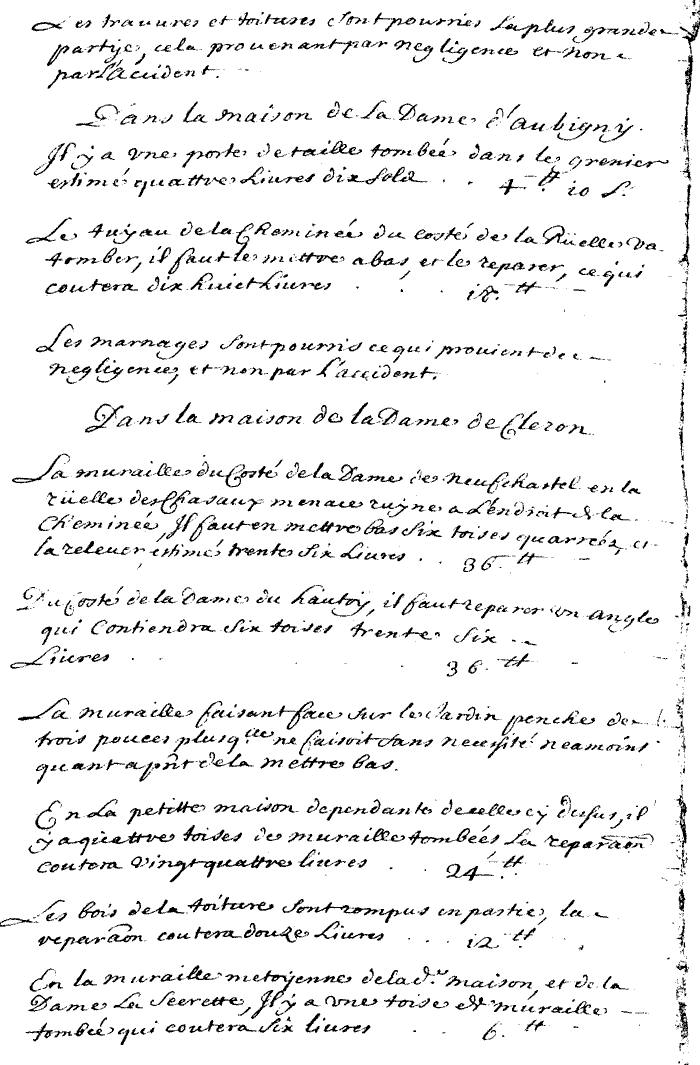 Les travures et toitures sont pourries la plus grande
partije, cela provenant par negligence et non
par L'accident.
Dans la maison de La Dame d'Aubigny.
Il y a vne porte de taille tombée dans le grenier
estimé quattre Livres dix sold . . 4 tt 10 s.
Le tuyau de la Cheminée du costé de la Rüelle va
tomber, il faut le mettre a bas, et le reparer, ce qui
coutera dix huict Livres . . . 18. tt
Les marnages sont pourris ce qui provient de
negligence, et non par L'accident.
Dans la maison de la Dame de Cleron
La muraille du Costé de la Dame de Neufchastel en la
rüelle des Chasaux menace ruyne a L'endroit de la
Cheminée, Il faut en mettre bas six toises quarreéz, et
la relever estimé trente six Livres . . 36. tt
Du Costé de la Dame du hautoy, il faut reparer vn angle
qui Contiendra six toises trente six
Livres . . . 36. tt
La muraille faisant face sur le Jardin penche de
trois pouces plus q.lle ne faisoit sans necessité neamoins
quant a pñt de la mettre bas.
En La petitte maison dependante de celle cy dessus, il
y a quattre toises de muraille tombées La reparaõn
coutera vingt quattre livres . . 24 tt
Les bois de la toiture sont rompus en partie, la
reparaõn coutera douze Livres . . 12 tt.
En la muraille metoyenne de la d.te maison, et de la
Dame La Seerette, Il y a vne toise de muraille
tombée qui coutera six livres . . 6. tt